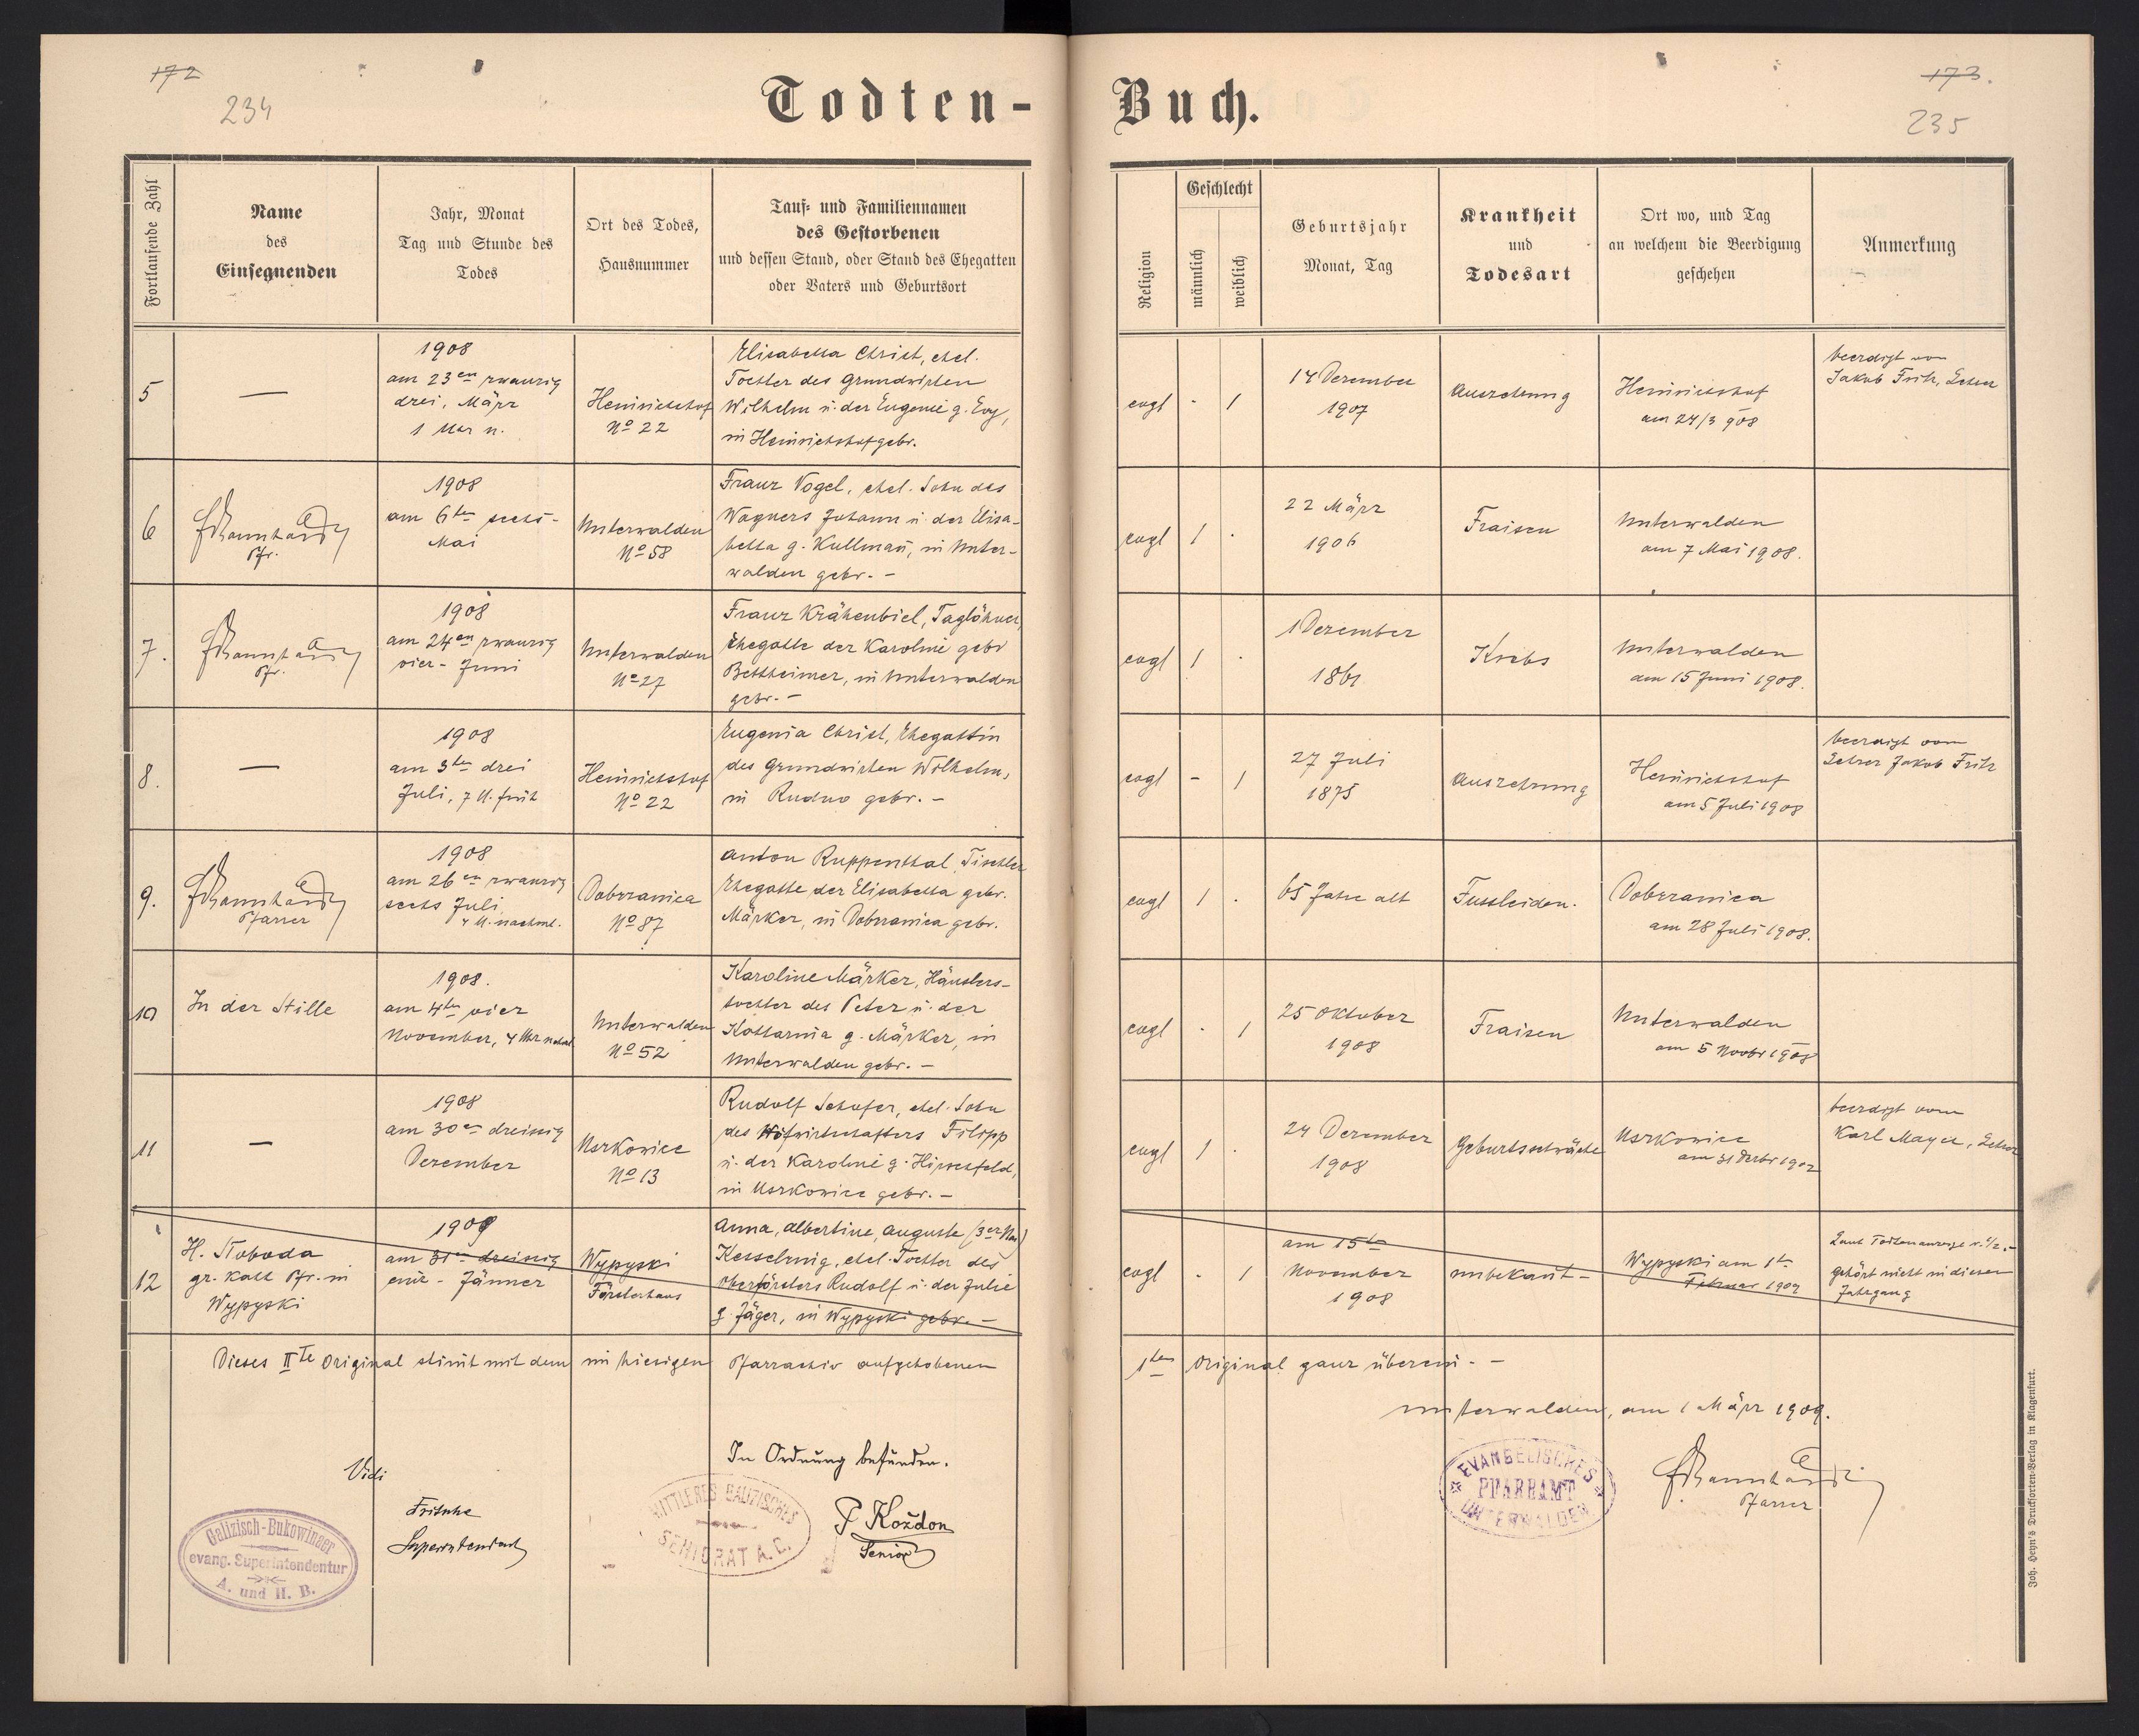 172
234
Todten-
Buch.
173.
235
Fortlaufende Zahl
Name
des
Einsegnenden
Jahr, Monat
Tag und Stunde des
Todes
Ort des Todes,
Hausnummer
Tauf- und Familiennamen
des Gestorbenen
und dessen Stand, oder Stand des Ehegatten
oder Vaters und Geburtsort
Religion
Geschlecht
männlich
weiblich
Geburtsjahr
Monat, Tag
Krankheit
und
Todesart
Ort wo, und Tag
an welchem die Beerdigung
geschehen
Anmerkung
5
—
1908
am 23en zwanzig
drei, März
1 Uhr n.
Heinrichshof
No 22
Elisabetha Christ, ehel.
Tochter des Grundwirten
Wilhelm u. der Eugenie g. Evy,
in Heinrichshof gebr.
evgl
-
1
14 Dezember
1907
Auszehrung
Heinrichshof
am 24/3 908
beerdigt von
Jakob Fritz, Lehrer
6
Pfr.
1908
am 6ten sechs-
Mai
Unterwalden
No 58
Franz Vogel, ehel. Sohn des
Wagners Johann u. der Elisa-
betha g. Kullmañ, in Unter-
walden gebr. -
evgl
1
.
22 März
1906
Fraisen
Unterwalden
am 7 Mai 1908.
7.
Pfr.
1908
am 24en zwanzig
vier- Juni
Unterwalden
No 27
Franz Krähenbiel, Taglöhner,
Ehegatte der Karoline gebr
Bettheimer, in Unterwalden
gebr. -
evgl
1
.
1 Dezember
1861
Krebs
Unterwalden
den 15 Juni 1908.
8.
—
1908
am 3ten drei
Juli, 7 U. früh
Heinrichshof
No 22
Eugenia Christ, Ehegattin
des Grundwirten Wilhelm,
in Rudno gebr. -
evgl
-
1
27 Juli
1875
Auszehrung
Heinrichshof
am 5 Juli 1908
beerdigt vom
Lehrer Jakob Fritz
9.
Pfarrer
1908
am 26en zwanzig
sechs Juli
4 U. nachm.
Dobrzanica
No 87
Anton Ruppenthal, Tischler
Ehegatte der Elisabetha gebr.
Märker, in Dobrzanica gebr.
evgl
1
.
65 Jahre alt
Fussleiden.
Dobrzanica
am 28 Juli 1908.
10
In der Stille
1908.
am 4ten vier
November, 4 Uhr nachm
Unterwalden
No 52
Karoline Märker, Häuslers-
tochter des Peter u. der
Kattarina g. Märker, in
Unterwalden gebr. -
evgl
.
1
25 Oktober
1908
Fraisen
Unterwalden
am 5 Novbr 1908
11
—
1908
am 30en dreissig
Dezember
Uszkowice
No 13
Rudolf Schofer, ehel. Sohn
des Hofwirtschafters Filipp
u. der Karoline g. Hirschfeld,
in Uszkowice gebr. -
evgl
1
.
24 Dezember
1908
Geburtsschwäche
Uszkowice
am 31 Dezbr 1908
beerdigt vom
Karl Mayer, Lehrer
12
H. Sloboda
gr. Kath Pfr. in
Wypyski
1909
am 31en dreissig
eins - Jänner
Wypyski
Försterhaus
Anna, Albertine, Auguste (3er Nam)
Kesselring, ehel. Tochter des
Oberförsters Rudolf u. der Julie
g. Jäger, in Wypyski gebr. -
evgl
-
1
am 15ten
November
1908
unbekañt -
Wypyski am 1ten
Februar 1909
Laut Todtenanzeige
gehört nicht in diesen
Jahrgang
Dieses IIte Original stim̃t mit dem im hiesigen Pfarrarchiv aufgehobenen
1ten Original ganz überein. -
Unterwalden, am 1 März 1909.
Pfarrer
EVANGELISCHES
PFARRAMT
UNTERWALDEN
Vidi
Fritsche
Superintendent
Galizisch-Bukowinaer
evang. Superintendentur
A. und H. B.
In Ordnung befunden.
MITTLERES GALIZISCHES
SENIORAT A. C.
P Kożdon
Senior
Joh. Heyn's Drucksorten-Verlag in Klagenfurt.